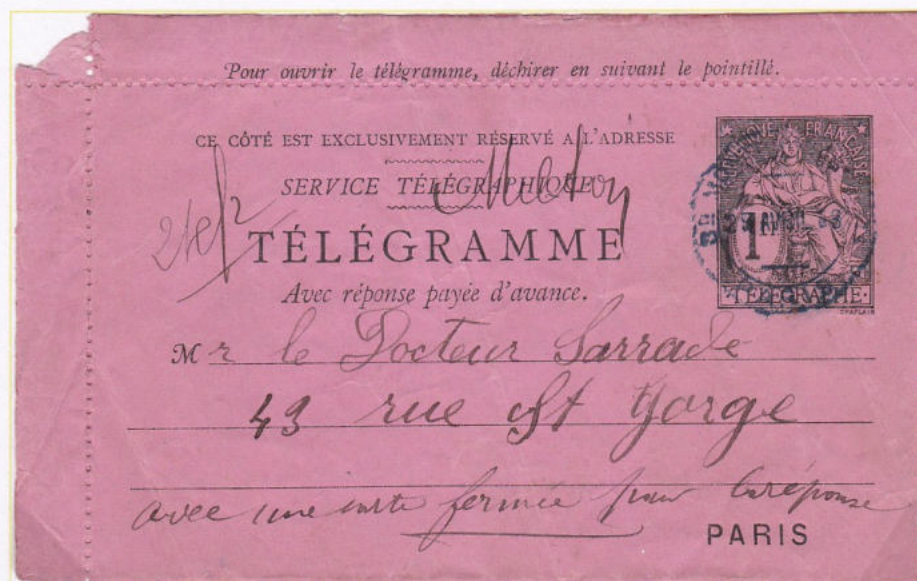 Pour ouvrir le télégramme, déchirer en suivant le pointillé.
CE CÔTÉ EST EXCLUSIVEMENT RÉSERVÉ A L'ADRESSE
SERVICE TÉLÉGRAPHIQUE
TÉLÉGRAMME
Avec réponse payée d'avance.
RÉPUBLIQUE FRANÇAISE
1F
TÉLÉGRAPHE
CHAPLAIN
Mr le Docteur Sarrade
49 rue St Gorge
avec une carte fermée pour la réponse
PARIS